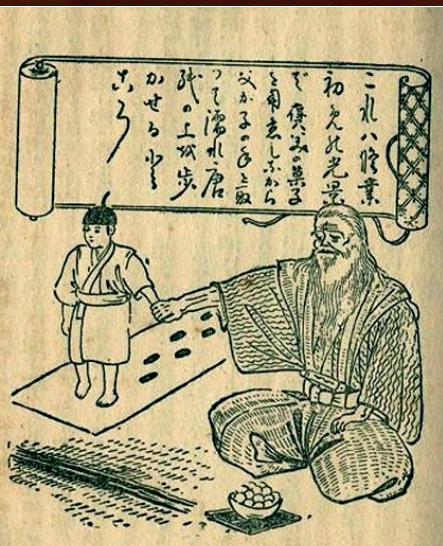 これハ修業
初めの光景
で褒美の菓子
を用意しながら
父が子の手を取
つて濡れ唐
紙の上を歩
かせると
ころ